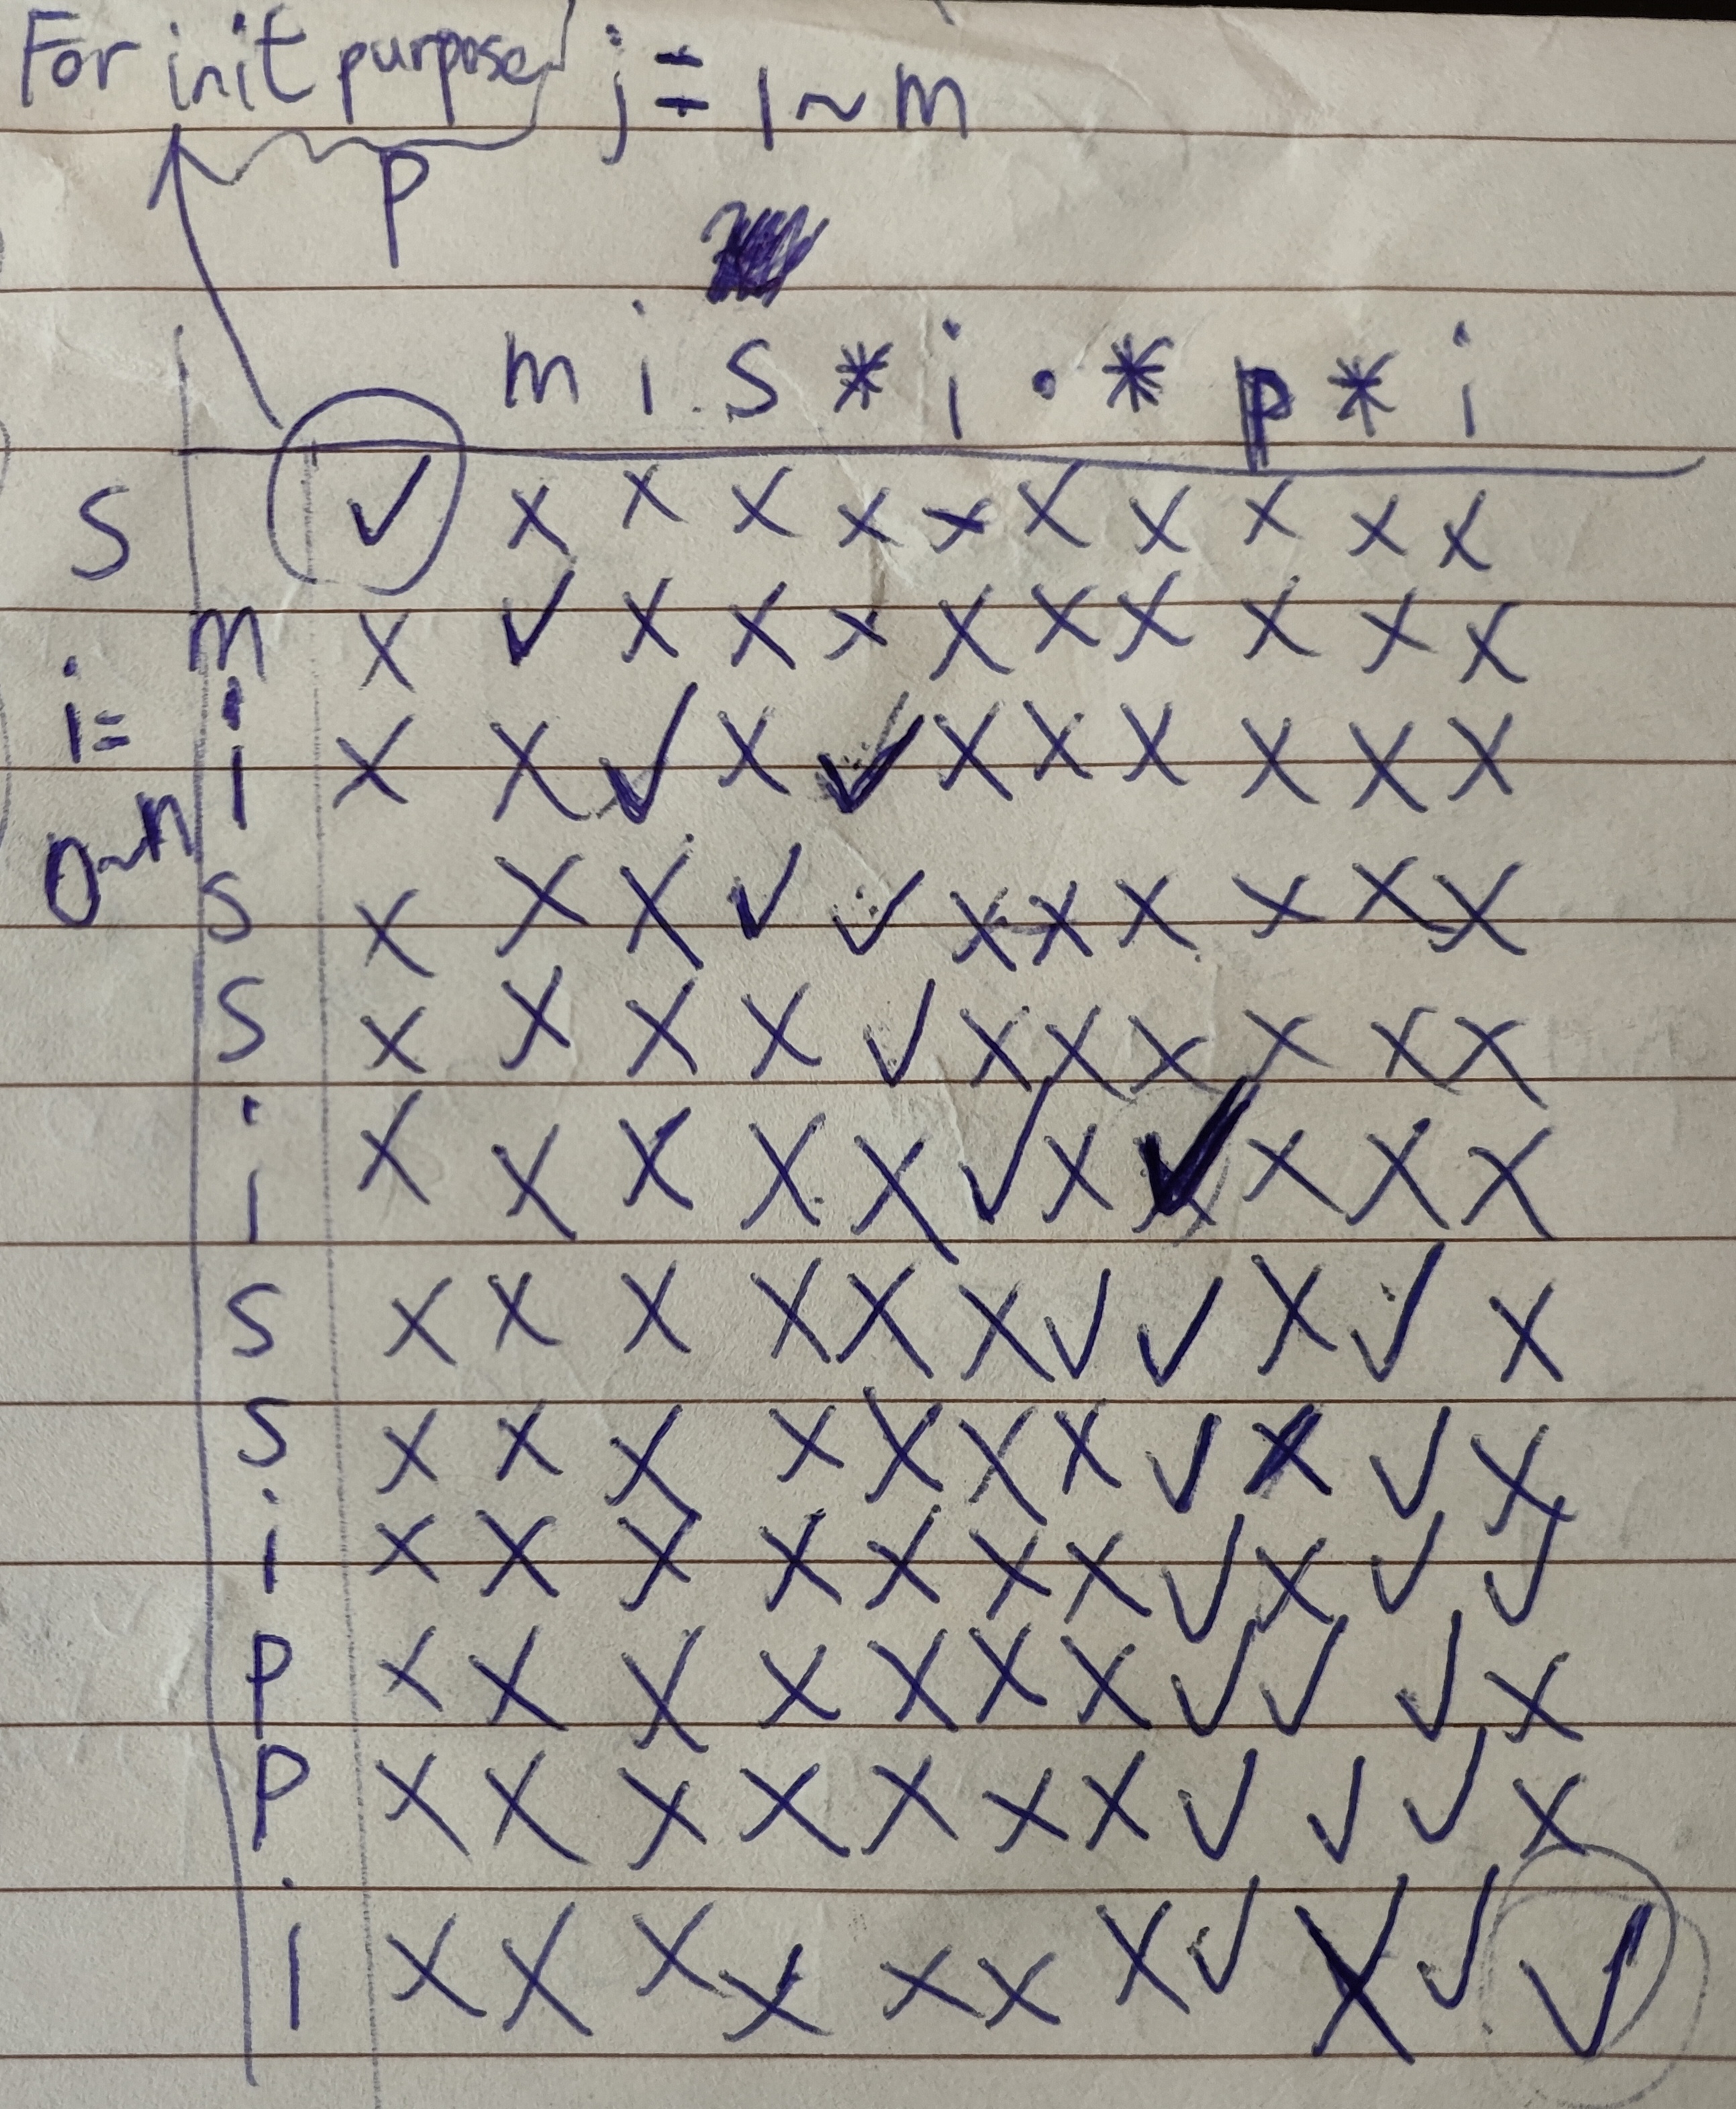 For init purpose j = 1~m
P
m i s * i . * p * i
S ✓ x x x x x x x x x x
m x ✓ x x x x x x x x x
i= i x x ✓ x ✓ x x x x x x
0~n s x x x ✓ ✓ x x x x x x
s x x x x ✓ x x x x x x
i x x x x x ✓ x ✓ x x x
s x x x x x x ✓ ✓ x ✓ x
s x x x x x x x ✓ x ✓ x
i x x x x x x x ✓ x ✓ ✓
p x x x x x x x ✓ ✓ ✓ x
p x x x x x x x ✓ ✓ ✓ x
i x x x x x x x ✓ x ✓ ✓